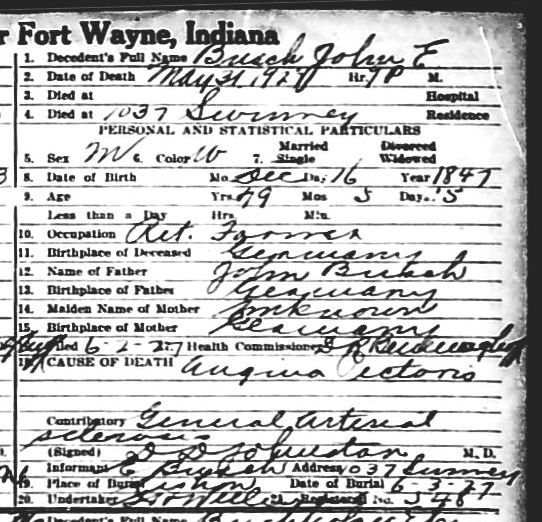 r Fort Wayne, Indiana
1. Decedent's Full Name Busch John E.
2. Date of Death May 31, 1927 Hr. 9 P M.
3. Died at Hospital
4. Died at 1037 Swinney Residence
PERSONAL AND STATISTICAL PARTICULARS
Married Divorced
5. Sex M 6. Color W 7. Single Widowed
8. Date of Birth Mo. Dec Da. 16 Year 1847
9. Age Yrs. 79 Mos 5 Days. 15
Less than a Day Hrs. Min.
10. Occupation Ret. Farmer
11. Birthplace of Deceased Germany
12. Name of Father John Busch
13. Birthplace of Father Germany
14. Maiden Name of Mother Unknown
15. Birthplace of Mother Germany
Filed 6-2-27 Health Commissioner
18. CAUSE OF DEATH Angina Pectoris
Contributory General Arterial
sclerosis
(Signed) D D Johnston M. D.
Informant E Busch Address 1037 Swinney
19. Place of Burial Date of Burial 6-3-27
20. Undertaker 21. Registered No. 548
Decedent's Full Name